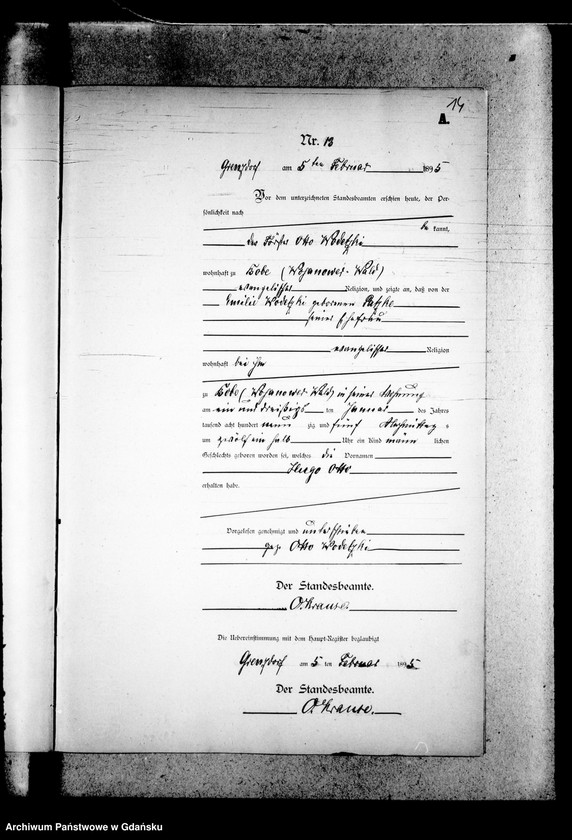 14
A.
Nr. 13
Grenzdorf am 5 ten Februar 1895
Vor dem unterzeichneten Standesbeamten erschien heute, der Per-
sönlichkeit nach
be kannt,
der Förster Otto Wodetzki
wohnhaft zu Bobe (Wojanower-Wald)
evangelischer Religion, und zeigte an, daß von der
Emilie Wodetzki geborenen
seiner Ehefrau
evangelischer Religion
wohnhaft bei ihm
zu Bobe (Wojanower-Wald) in seiner Wohnung
am ein und dreißigsten Januar des Jahres
tausend acht hundert neun zig und fünf Nachmittags
um zwölf ein halb Uhr ein Kind männ lichen
Geschlechts geboren worden sei, welches die Vornamen
Hugo Otto
erhalten habe.
Vorgelesen, genehmigt und unterschrieben
gez. Otto Wodetzki
Der Standesbeamte.
O. Krause.
Die Uebereinstimmung mit dem Haupt-Register beglaubigt
Grenzdorf am 5 ten Februar 1895
Der Standesbeamte.
O. Krause.
Archiwum Państwowe w Gdańsku